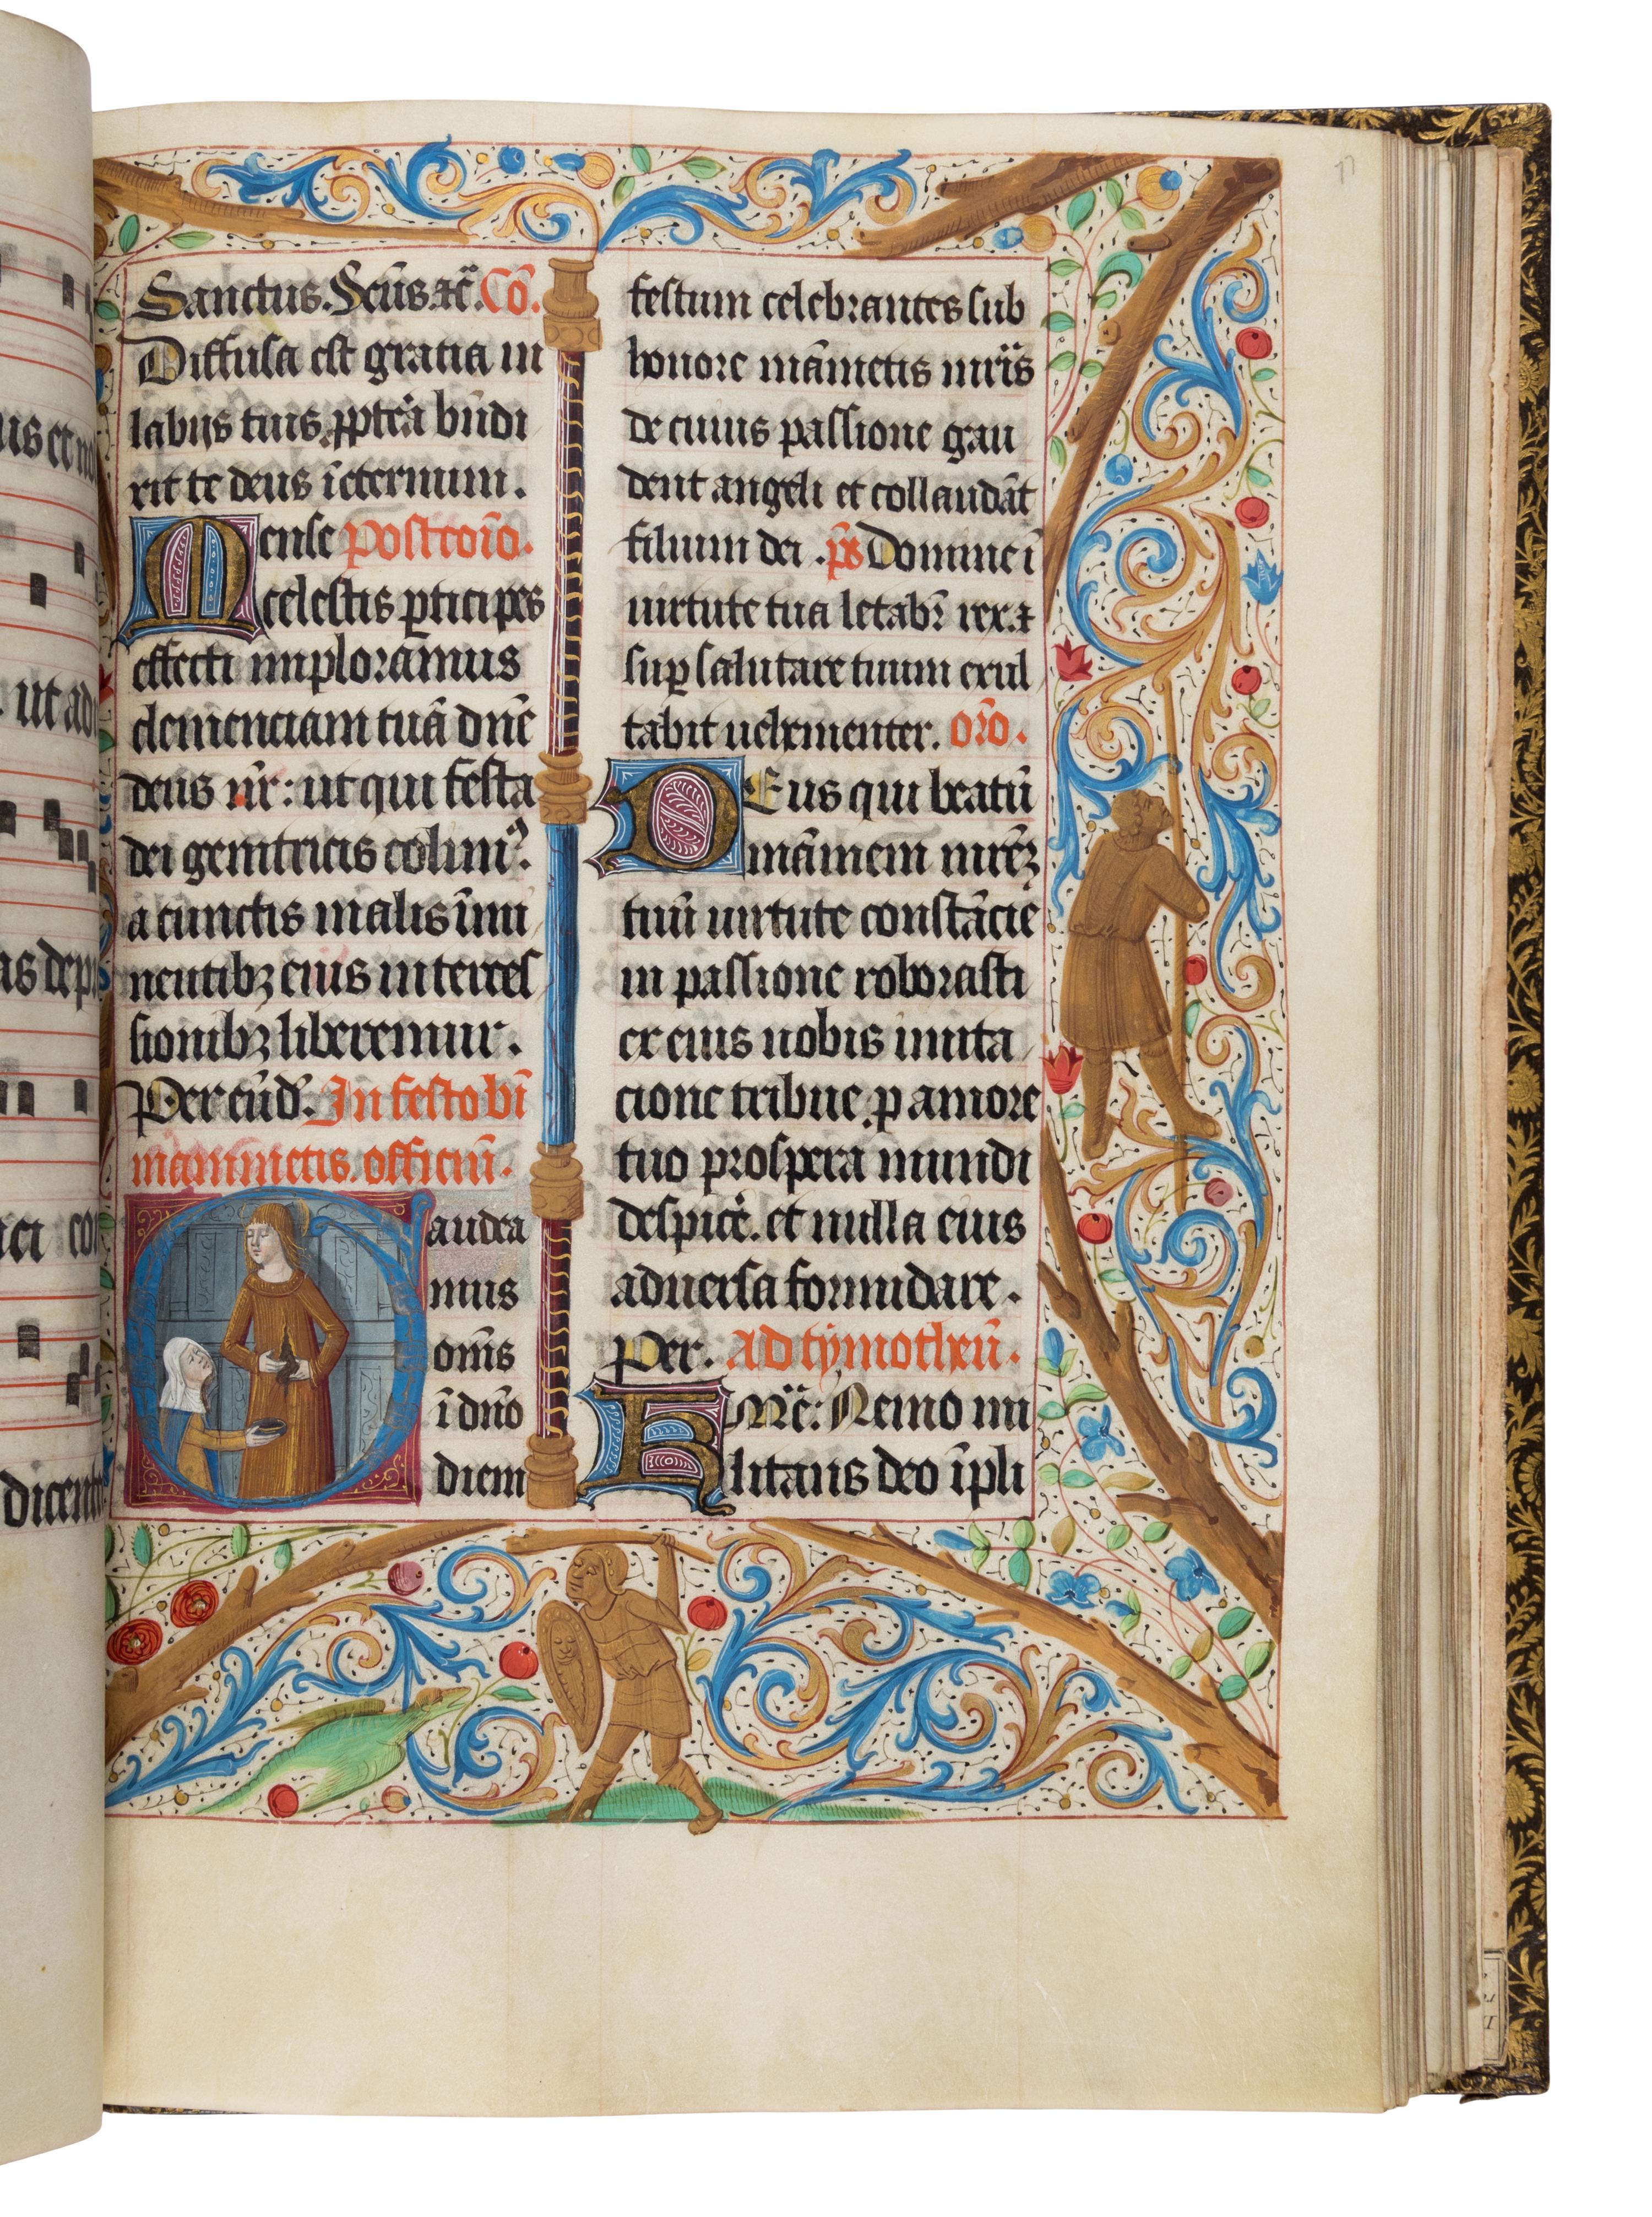 Sanctus. Sc̄us. ⁊c̄. Cō.
Diffusa est gratia in
labijs tuis. ꝓpt̓ea bn̄di
xit te deus īeternum.
Mense Postcōio.
celestis ꝑticipes
effecti imploramus
clemenciam tuā dn̄e
deus nr̄: ut qui festa
dei genitricis colimꝰ.
a cunctis malis īmi
nentibꝫ eius interces
sionibꝫ liberemur.
Per eūd̄. In festo bī
mammetis. officiū.
Gaudea
mus
om̄s
ī dn̄o
diem
festum celebrantes sub
honore māmetis mr̄is
de cuius passione gau
dent angeli et collaudāt
filium dei. p̄s Domine ī
uirtute tua letabr̄ rex. ⁊
suꝑ salutare tuum exul
tabit uehementer. Or̄o.
DEus qui beatū
māmem mr̄eꝫ
tuū uirtute constācie
in passione roborasti
ex eius nobis imita
cione tribue. ꝓ amore
tuo prospera mundi
despic̓e. et nulla eius
aduersa formidare.
Per. Ad tymotheū.
Kmc̄: Nemo mi
litans deo īpli
us et no
ut ad
as dep
ci co
dicent